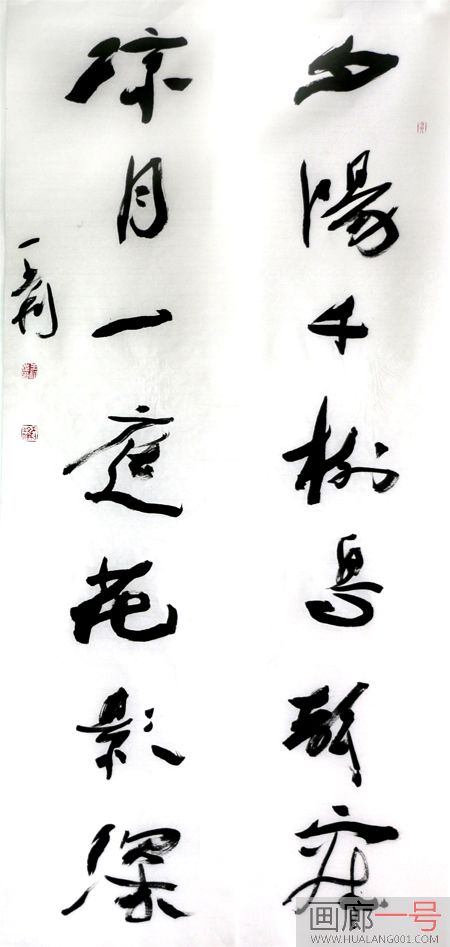 夕陽千樹鳥聲寂
涼月一庭花影深
画廊一号
WWW.HUALANG001.COM